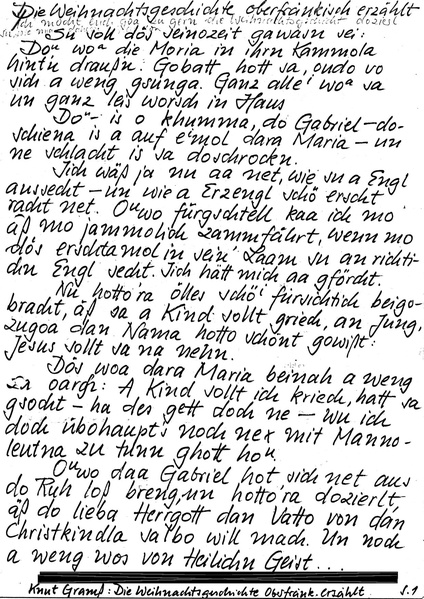 Die Weihnachtsgeschichte oberfränkisch erzählt
Ich möcht eich göa zu gern die Weihnachtsgschicht
Su söll dös seinozeit gawäsn sei:
Doᵘ woᵃ die Moria in ihrn Kammola
hintn draußn. Gobatt hott sa, oudo vo
sich a weng gsunga. Ganz alleⁱ woᵃ sa
un ganz leis worsch in Haus
Doᵘ - is o khumma, do Gabriel - do-
schiena is a auf eⁱmol dara Maria - un
ne schlacht is sa doschrockn.
Iich wäß ja nu aa net, wie su a Engl
aussecht - un wie a Erzengl schöⁱ erscht
racht net. Oᵘwo fürgschtell kaa ich mo
äß mo jammolich zammfährt, wenn mo
dös erschtamol in seinⁱ Läam su an richti-
chn Engl secht. Iich hätt mich aa gförcht.
Nu hotto'ra ölles schöⁱ fürsichtich beigo-
bracht, äß sa a Kind sollt griech, an Jung,
zugoa dan Nama hotto schönt gowißt:
Jesus sollt sa na nenn.
Dös woa dara Maria beinah a weng
za oarch: A Kind sollt ich kriech, hatt sa
gsocht - ha des gett doch ne - wu ich
doch übohaupts noch nex mit Manno-
leutna zu tunn ghott hoᵘ.
Oᵘwo daa Gabriel hot sich net aus
do Ruh loß breng, un hotto'ra dozierlt,
äß do lieba Herrgott dan Vatto von dan
Christkindla salbo will mach. Un noch
a weng wos von Heilichn Geist...
Knut Gramß: Die Weihnachtsgeschichte Oberfränk. erzählt S.1